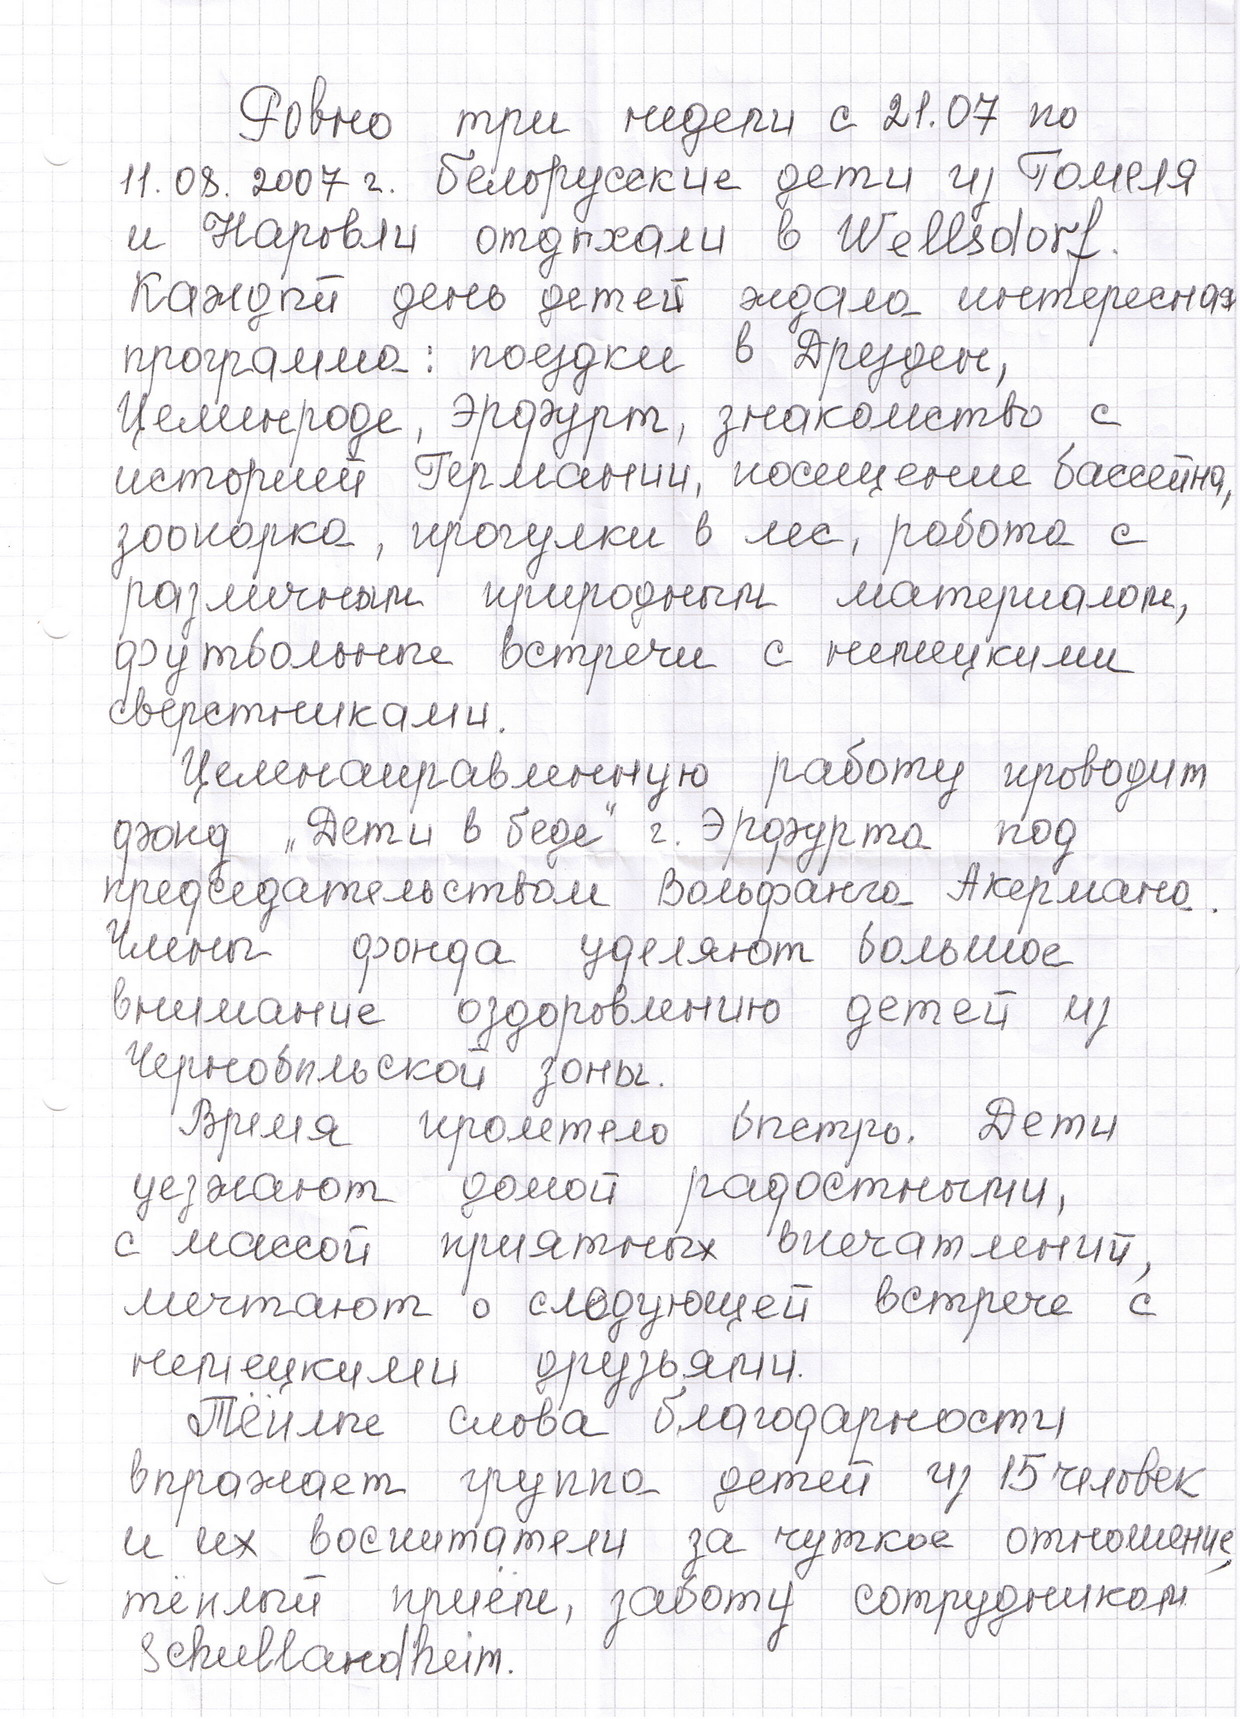 Ровно три недели с 21.07 по
11.08.2007 г. белорусские дети из Гомеля
и Наровли отдыхали в Wellsdorf.
Каждый день детей ждала интересная
программа: поездки в Дрезден,
Целинроде, Эрфурт, знакомство с
историей Германии, посещение бассейна,
зоопарка, прогулки в лес, работа с
различным природным материалом,
футбольные встречи с немецкими
сверстниками.
Целенаправленную работу проводит
фонд „Дети в беде“ г. Эрфурта под
председательством Вольфанга Акермана.
Члены фонда уделяют большое
внимание оздоровлению детей из
Чернобыльской зоны.
Время пролетело быстро. Дети
уезжают домой радостными,
с массой приятных впечатлений,
мечтают о следующей встрече с
немецкими друзьями.
Тёплые слова благодарности
выражает группа детей из 15 человек
и их воспитатели за чуткое отношение,
тёплый приём, заботу сотрудникам
Schullandheim.